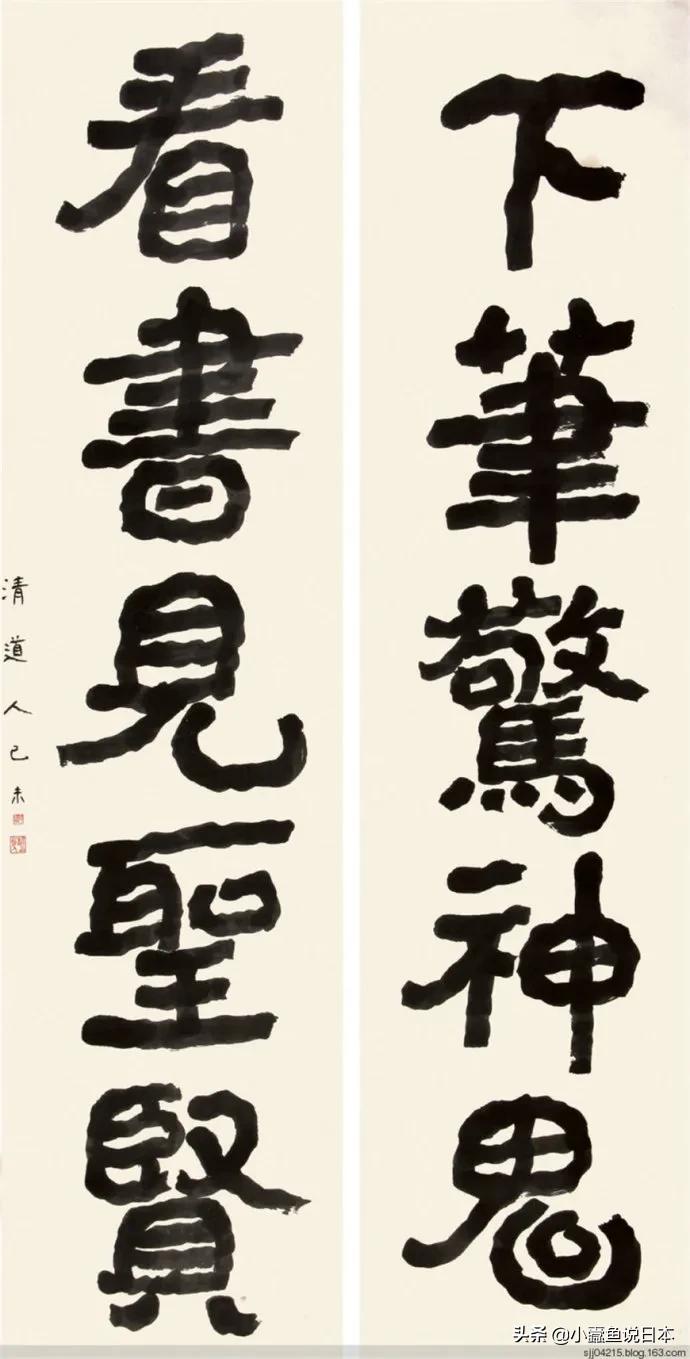 下筆驚神鬼
看書見聖賢
清道人己未
头条 @小羸鱼说日本
sjj04215.blog.163.com